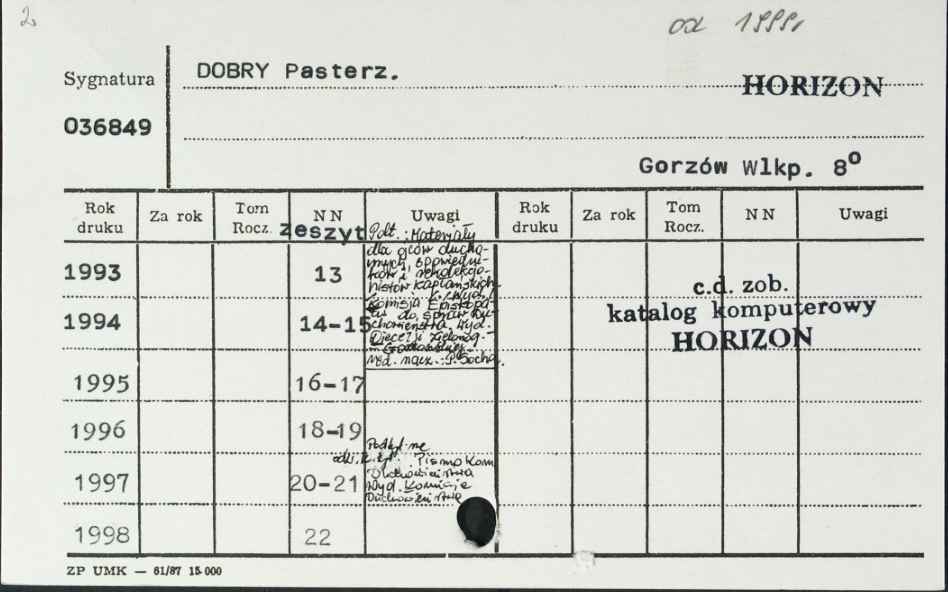 2.
od 1999,
Sygnatura
DOBRY Pasterz.
HORIZON
036849
Gorzów Wlkp. 8º
Rok druku Za rok Tom Rocz. NN Uwagi Rok druku Za rok Tom Rocz. NN Uwagi
zeszyt
Podt.: Materiały
dla ojców ducho-
wnych, spowiedni-
ków i rekolekcjo-
nistów kapłańskich
Komisja Episkopa-
tu do spraw Du-
chowieństwa. Wyd.
Diecezji Zielonog.
- Gorzowskiej.
red. nacz.: P. Socha.
1993 13
1994 14-15
c.d. zob.
katalog komputerowy
HORIZON
1995 16-17
1996 18-19
Pismo Kom
Duchowieństwa
Wyd. Komisja
Duchowieństwa
1997 20-21
1998 22
ZP UMK — 61/87 15 000